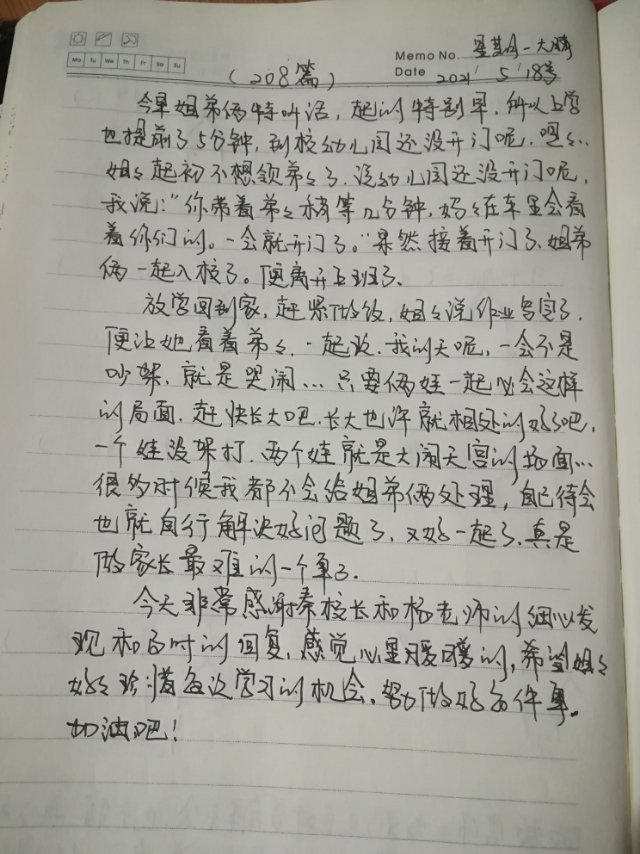 Mo Tu We Th Fr Sa Su
Memo No.
Date 2021 5 18号
（208篇）
今早姐弟俩特听话，起的特别早，所以上学
也提前了5分钟，到校幼儿园还没开门呢，嘿々..
姐々起初不想领弟々了，说幼儿园还没开门呢，
我说：“你带着弟々稍等几分钟，妈々在车里会看
着你们的。一会就开门了。”果然接着开门了、姐弟
俩一起入校了。便离开上班了、
放学回到家，赶紧做饭，姐々说作业写完了，
便让她看着弟々，一起玩、我的天呢，一会不是
吵架，就是哭闹…只要俩娃一起必会这样
的局面、赶快长大吧、长大也许就相处的好吧，
一个娃没架打、两个娃就是大闹天宫的场面…
很多时候我都不会给姐弟俩处理，自己待会
也就自行解决好问题了、又好一起了、真是
做家长最难的一个事了、
今天非常感谢秦校长和杨老师的细心发
现和及时的回复，感觉心里暖暖的，希望姐々
好々珍惜每次学习的机会、努力做好每件事。
加油吧！